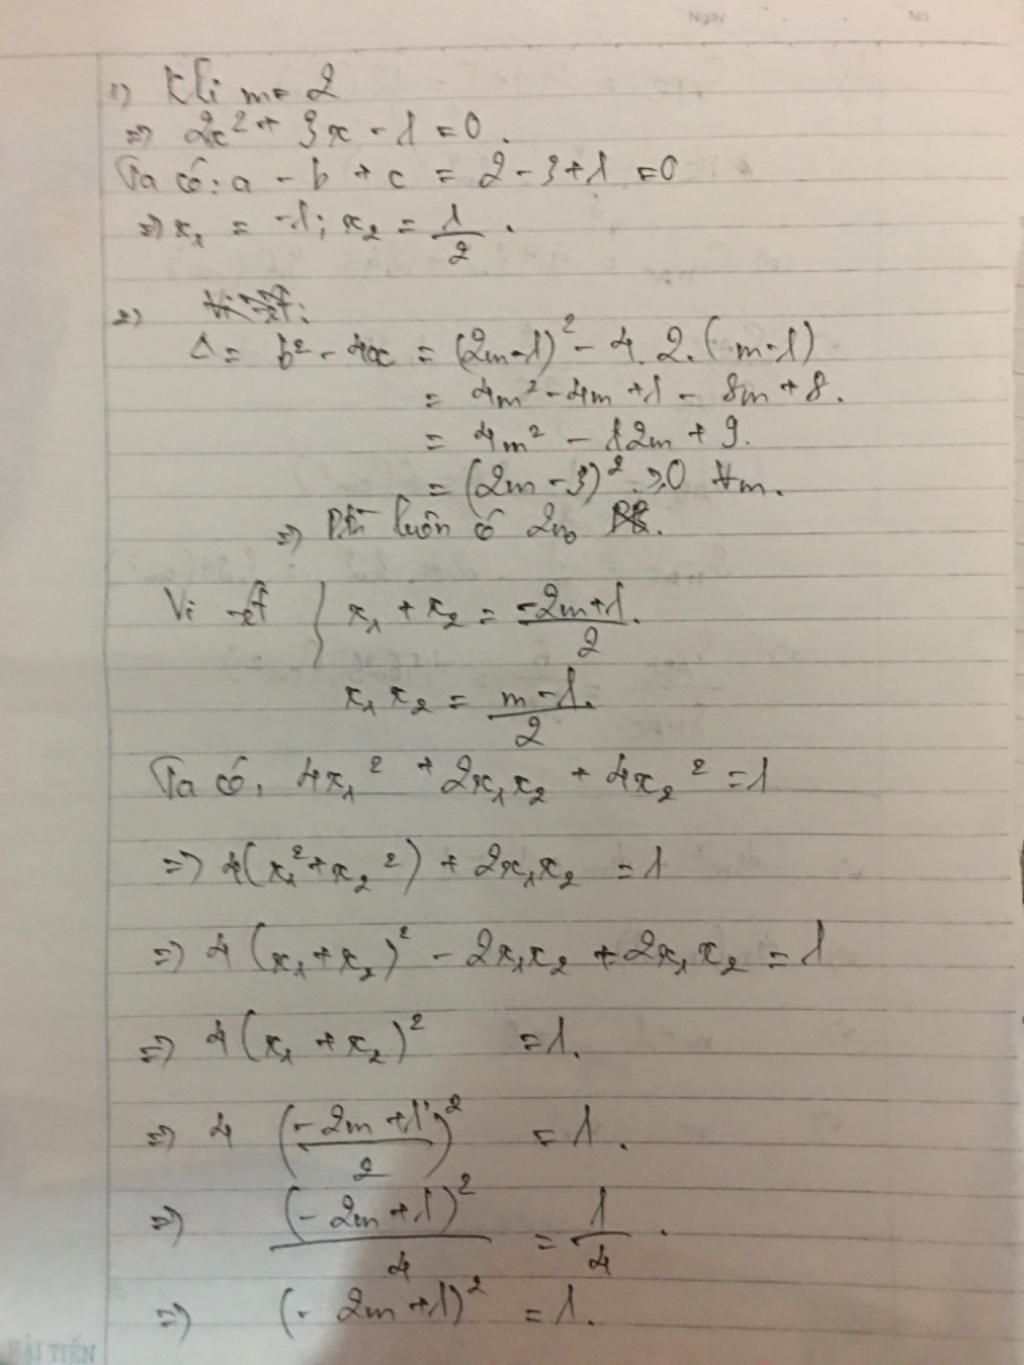 Ngày No.
1) Khi m = 2
=> 2x² + 3x - 1 = 0.
Ta có: a - b + c = 2 - 3 + 1 = 0
=> x₁ = -1; x₂ = 1/2.
2) Vi-ét:
Δ = b² - 4ac = (2m-1)² - 4.2.(m-1)
= 4m² - 4m + 1 - 8m + 8.
= 4m² - 12m + 9.
= (2m - 3)² ≥ 0 ∀m.
=> Pt luôn có 2no PB.
Vi-ét { x₁ + x₂ = (-2m+1)/2.
x₁x₂ = (m-1)/2.
Ta có, 4x₁² + 2x₁x₂ + 4x₂² = 1
=> 4(x₁² + x₂²) + 2x₁x₂ = 1
=> 4(x₁+x₂)² - 2x₁x₂ + 2x₁x₂ = 1
=> 4(x₁ + x₂)² = 1.
=> 4 ((-2m+1)/2)² = 1.
=> (-2m+1)²/4 = 1/4.
=> (-2m+1)² = 1.
HẢI TIẾN